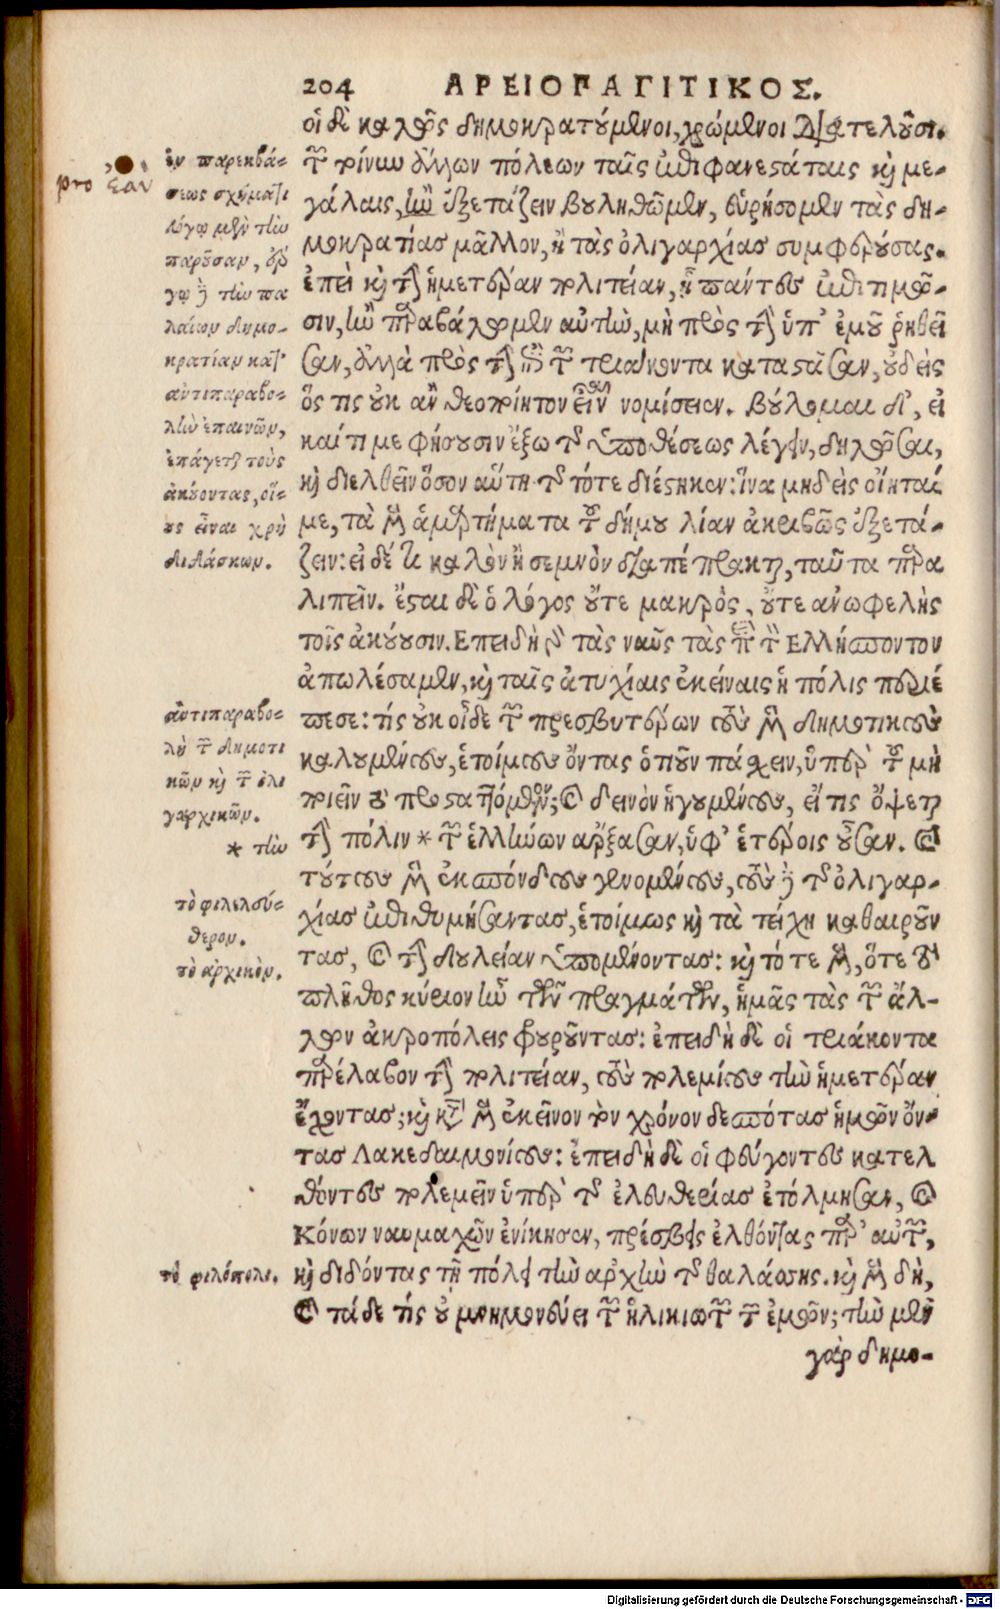 204 ΑΡΕΙΟΠΑΓΙΤΙΚΟΣ.
οἱ δὲ καλῶς δημοκρατούμενοι, χρώμενοι διατελοῦσι.
τῶν τοίνυν ἄλλων πόλεων ταῖς ἐπιφανεστάταις καὶ με-
γάλαις, ἢν ἐξετάζειν βουληθῶμεν, εὑρήσομεν τὰς δη-
μοκρατίας μᾶλλον, ἢ τὰς ὀλιγαρχίας συμφερούσας.
ἐπεὶ καὶ τὴν ἡμετέραν πολιτείαν, ᾗ πάντες ἐπιτιμῶ-
σιν, ἢν παραβάλωμεν αὐτὴν, μὴ πρὸς τὴν ὑπ' ἐμοῦ ῥηθεῖ
σαν, ἀλλὰ πρὸς τὴν ὑπὸ τῶν τριάκοντα καταστᾶσαν, οὐδεὶς
ὅς τις οὐκ ἂν θεοποίητον εἶναι νομίσειεν. βούλομαι δ', εἰ
καί τί με φήσουσιν ἔξω τῆς ὑποθέσεως λέγειν, δηλῶσαι,
καὶ διελθεῖν ὅσον αὕτη τῆς τότε διέστηκεν: ἵνα μηδεὶς οἴηταί
με, τὰ μὲν ἁμαρτήματα τοῦ δήμου λίαν ἀκριβῶς ἐξετά-
ζειν: εἰ δέ τι καλὸν ἢ σεμνὸν διαπέπρακται, ταῦτα παρα
λιπεῖν. ἔσται δὲ ὁ λόγος οὔτε μακρὸς, οὔτε ἀνωφελὴς
τοῖς ἀκούουσιν. Επειδὴ γὰρ τὰς ναῦς τὰς περὶ τὸν Ελλήσποντον
ἀπωλέσαμεν, καὶ ταῖς ἀτυχίαις ἐκείναις ἡ πόλις περιέ
πεσε: τίς οὐκ οἶδε τῶν πρεσβυτέρων τοὺς μὲν δημοτικοὺς
καλουμένους, ἑτοίμους ὄντας ὁτιοῦν πάσχειν, ὑπὲρ τοῦ μὴ
ποιεῖν τὸ προσταττόμενον; καὶ δεινὸν ἡγουμένους, εἴ τις ὄψεται
τὴν πόλιν * τῶν ἑλλήνων ἄρξασαν, ὑφ' ἑτέροις οὖσαν. καὶ
τούτους μὲν ἐκσπόνδους γενομένους, τοὺς δὲ τῆς ὀλιγαρ-
χίας ἐπιθυμήσαντας, ἑτοίμως καὶ τὰ τείχη καθαιροῦν
τας, καὶ τὴν δουλείαν ὑπομένοντας: καὶ τότε μὲν, ὅτε τὸ
πλῆθος κύριον ἦν τῶν πραγμάτων, ἡμᾶς τὰς τῶν ἄλ-
λων ἀκροπόλεις φρουροῦντας: ἐπειδὴ δὲ οἱ τριάκοντα
παρέλαβον τὴν πολιτείαν, τοὺς πολεμίους τὴν ἡμετέραν
ἔχοντας; καὶ κατὰ μὲν ἐκεῖνον τὸν χρόνον δεσπότας ἡμῶν ὄν-
τας Λακεδαιμονίους: ἐπειδὴ δὲ οἱ φεύγοντες κατελ
θόντες πολεμεῖν ὑπὲρ τῆς ἐλευθερίας ἐτόλμησαν, καὶ
Κόνων ναυμαχῶν ἐνίκησεν, πρέσβεις ἐλθόντας παρ' αὐτῶν,
καὶ διδόντας τῇ πόλει τὴν ἀρχὴν τῆς θαλάσσης. καὶ μὲν δὴ,
καὶ τάδε τίς οὐ μνημονεύει τῶν ἡλικιωτῶν τῶν ἐμῶν; τὴν μὲν
γὰρ δημο-
pro ἐὰν
ἐν παρεκβά-
σεως σχήματι
λόγῳ μὲν τὴν
παροῦσαν, ἔρ
γῳ δὲ τὴν πα
λαίαν δημο-
κρατίαν κατ'
ἀντιπαραβο-
λὴν ἐπαινῶν,
ἐπάγεται τοὺς
ἀκούοντας, οἵ-
ους εἶναι χρὴ
διδάσκων.
ἀντιπαραβο-
λὴ τῶν δημοτι
κῶν καὶ τῶν ὀλι
γαρχικῶν.
* τὴν
τὸ φιλελεύ-
θερον.
τὸ ἀρχικὸν.
τὸ φιλόπολι.
Digitalisierung gefördert durch die Deutsche Forschungsgemeinschaft - DFG